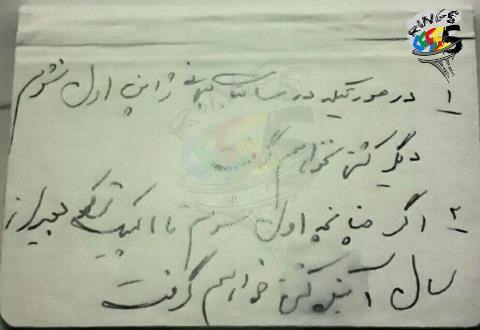 RINGS
۱ در صورتیکه در مسابقات جهانی ژاپن اول نشوم
دیگر کشتی نخواهم گرفت
۲ اگر چنانچه اول شوم تا المپیک بعد از
سال آینده کشتی خواهم گرفت